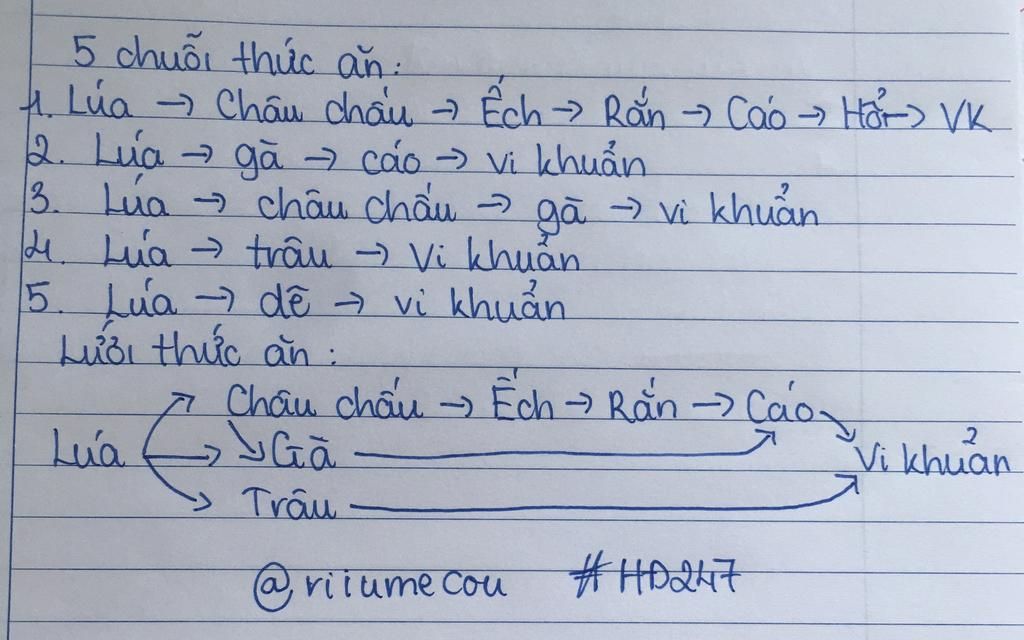 5 chuỗi thức ăn:
1. Lúa → Châu chấu → Ếch → Rắn → Cáo → Hổ → VK
2. Lúa → gà → cáo → vi khuẩn
3. Lúa → châu chấu → gà → vi khuẩn
4. Lúa → trâu → Vi khuẩn
5. Lúa → dê → vi khuẩn
Lưới thức ăn:
Châu chấu → Ếch → Rắn → Cáo
Lúa → Gà → Vi khuẩn
Trâu →
@riiumecou #HD247